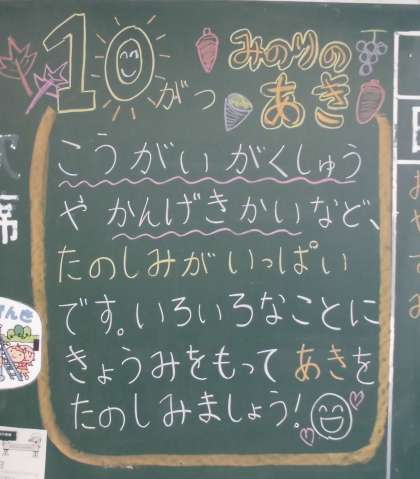 10がつ みのりの
あき
こうがいがくしゅう
や かんげきかいなど、
たのしみがいっぱい
です。いろいろなことに
きょうみをもって あきを
たのしみましょう!
席
おやすみ